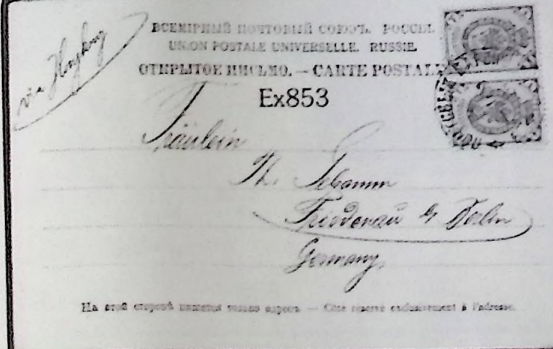 via Hongkong
ВСЕМІРНЫЙ ПОЧТОВЫЙ СОЮЗЪ. РОССІЯ.
UNION POSTALE UNIVERSELLE. RUSSIE.
ОТКРЫТОЕ ПИСЬМО. — CARTE POSTALE
Ex853
Fräulein
Friedenau b/ Berlin
Germany
На этой сторонѣ пишется только адресъ. — Côté réservé exclusivement à l'adresse.